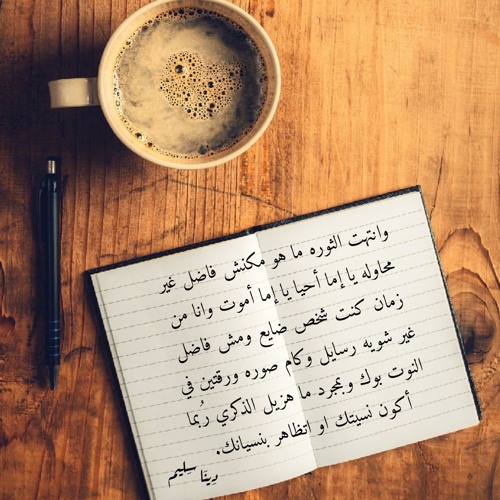 وانتهت الثوره ما هو مكنش فاضل غير
محاوله يا إما أحيا يا إما أموت وانا من
زمان كنت شخص ضايع ومش فاضل
غير شويه رسايل وكام صوره ورقتين في
النوت بوك وبمجرد ما هزيل الذكري رُبما
أكون نسيتك او اتظاهر بنسيانك.
دينا سليم